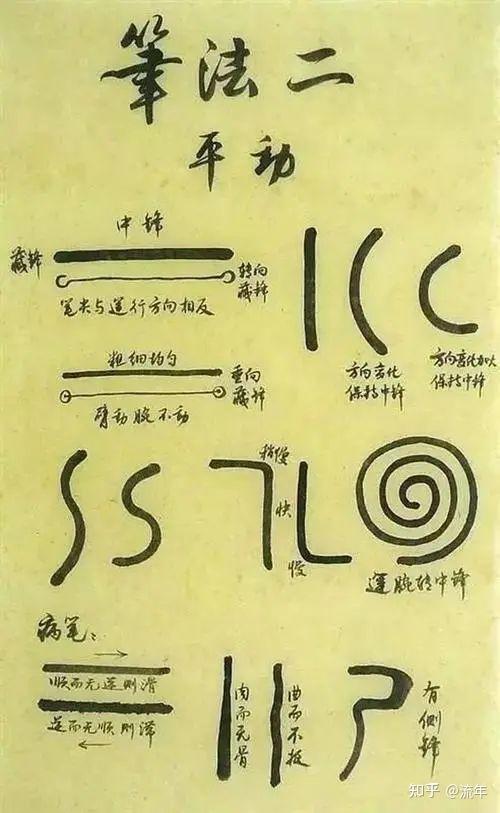 筆法二
平動
中鋒
藏鋒
转向
藏鋒
笔尖与运行方向相反
粗细均匀
垂向
藏鋒
臂动腕不动
方向变化
保持中锋
方向变化加大
保持中锋
稍慢
快
慢
运腕转中锋
病笔：
顺而无逆则滑
逆而无顺则滞
肉而无骨
曲而不挺
有侧锋
知乎 @流年